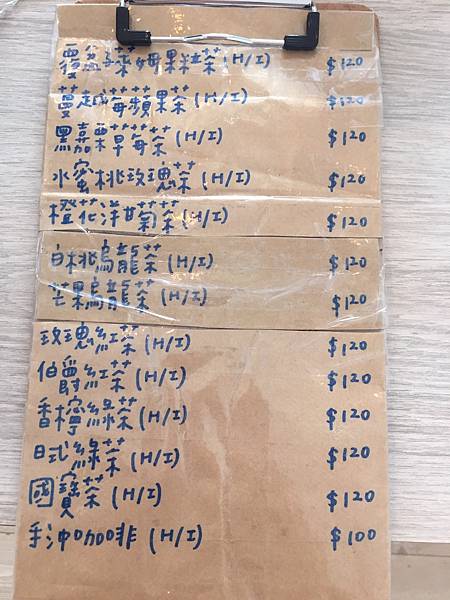 覆盆莓果粒茶(H/I) $120
蔓越莓蘋果茶(H/I) $120
黑嘉栗草莓茶(H/I) $120
水蜜桃玫瑰茶(H/I) $120
橙花洋甘菊茶(H/I) $120
白桃烏龍茶(H/I) $120
芒果烏龍茶(H/I) $120
玫瑰紅茶(H/I) $120
伯爵紅茶(H/I) $120
香檸綠茶(H/I) $120
日式綠茶(H/I) $120
國寶茶(H/I) $120
手沖咖啡(H/I) $100